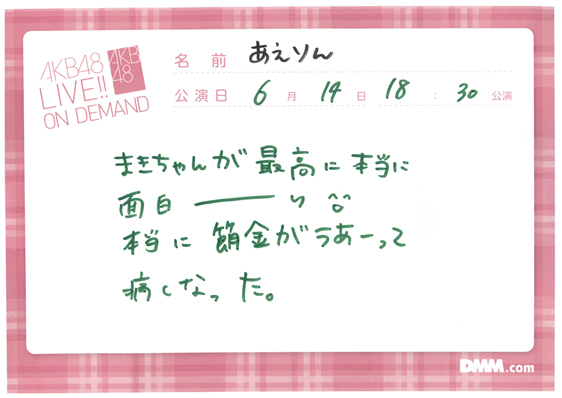 AKB48
LIVE!!
ON DEMAND
AKB
48
名前 あえりん
公演日 6月 14日 18:30公演
まきちゃんが最高に本当に
面白 ――― い
本当に 金がうあーって
病しなった。
DMM.com